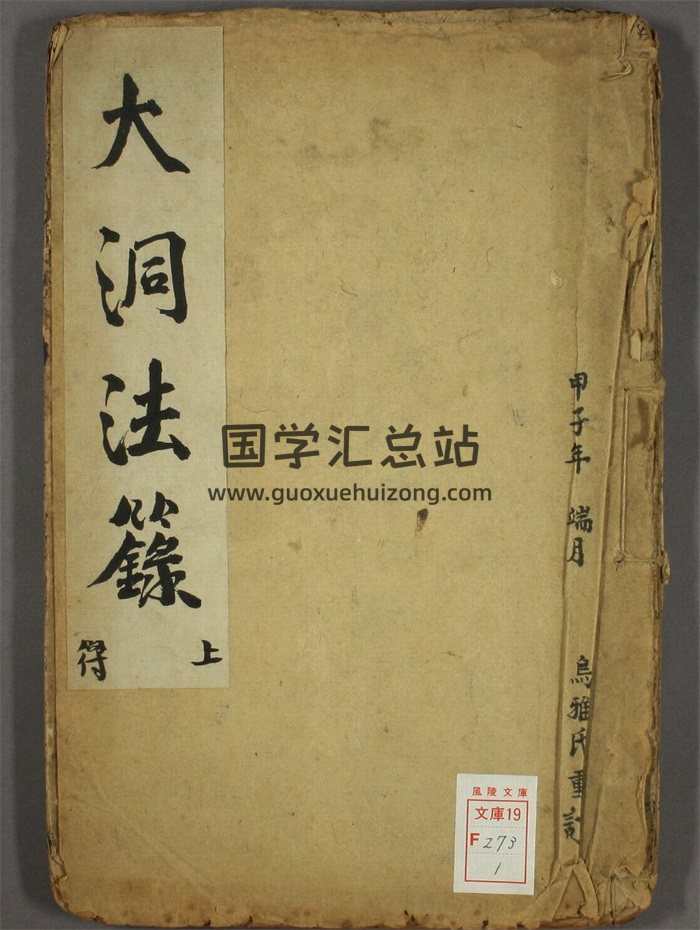 大洞法籙
上
符
甲子年 端月
烏雅氏重
国学汇总站
www.guoxuehuizong.com
風陵文庫
文庫19
F 273
1